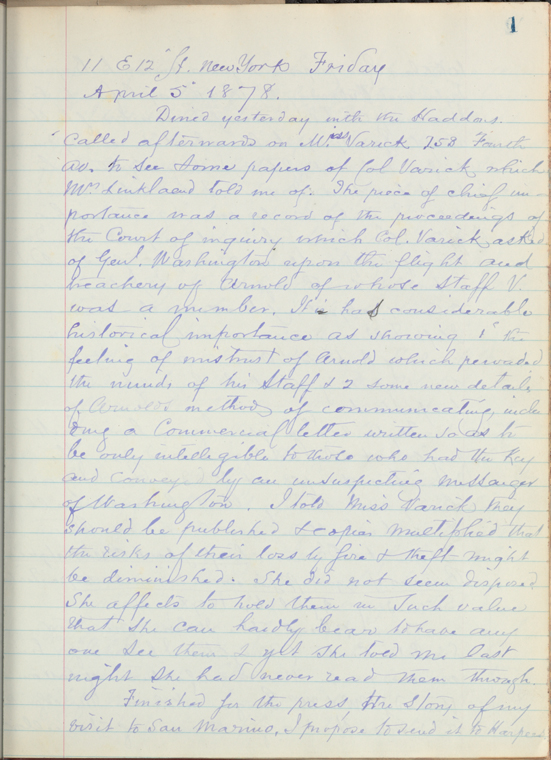 1
11 E 12" St. New York Friday
April 5" 1878.
Dined yesterday with the Haddons.
Called afterwards on Miss Varick 253 Fourth
Av. to see some papers of Col Varick which
Mrs Linklaend told me of. The piece of chief im-
portance was a record of the proceedings of
the Court of inquiry which Col. Varick asked
of Genl. Washington upon the flight and
treachery of Arnold of whose Staff V.
was a member. It has considerable
historical importance as showing 1st the
feeling of mistrust of Arnold which pervaded
the minds of his Staff & 2 some new details
of Arnold's methods of communicating, inclu
ding a Commercial letter written so as to
be only intelligible to those who had the Key
and conveyed by an unsuspecting messenger
of Washington. I told Miss Varick they
should be published & copies multiplied that
the risks of their loss by fire & theft might
be diminished. She did not seem disposed
She affects to hold them in such value
that she can hardly bear to have any
one see them & yet she told me last
night she had never read them through.
Finished for the press, the story of my
visit to San Marino. I propose to send it to Harpers